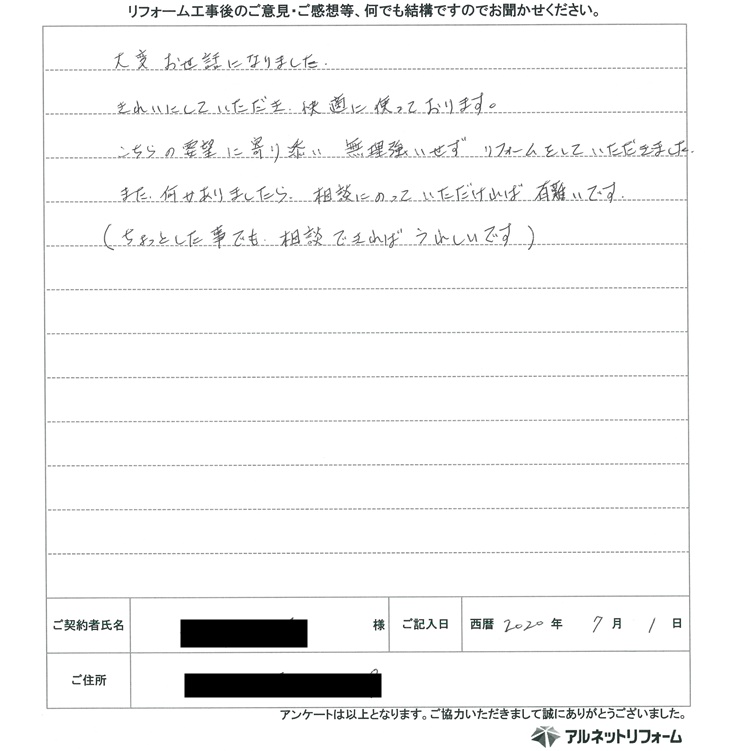 リフォーム工事後のご意見・ご感想等、何でも結構ですのでお聞かせください。
大変 お世話になりました.
きれいにしていただき、快適に使っております。
こちらの要望に寄り添い 無理強いせず リフォームをしていただきました.
また、何かありましたら、相談にのっていただければ 有難いです.
(ちょっとした事でも、相談できればうれしいです)
ご契約者氏名 様 ご記入日 西暦 2020 年 7 月 1 日
ご住所
アンケートは以上となります。ご協力いただきまして誠にありがとうございました。
アルネットリフォーム